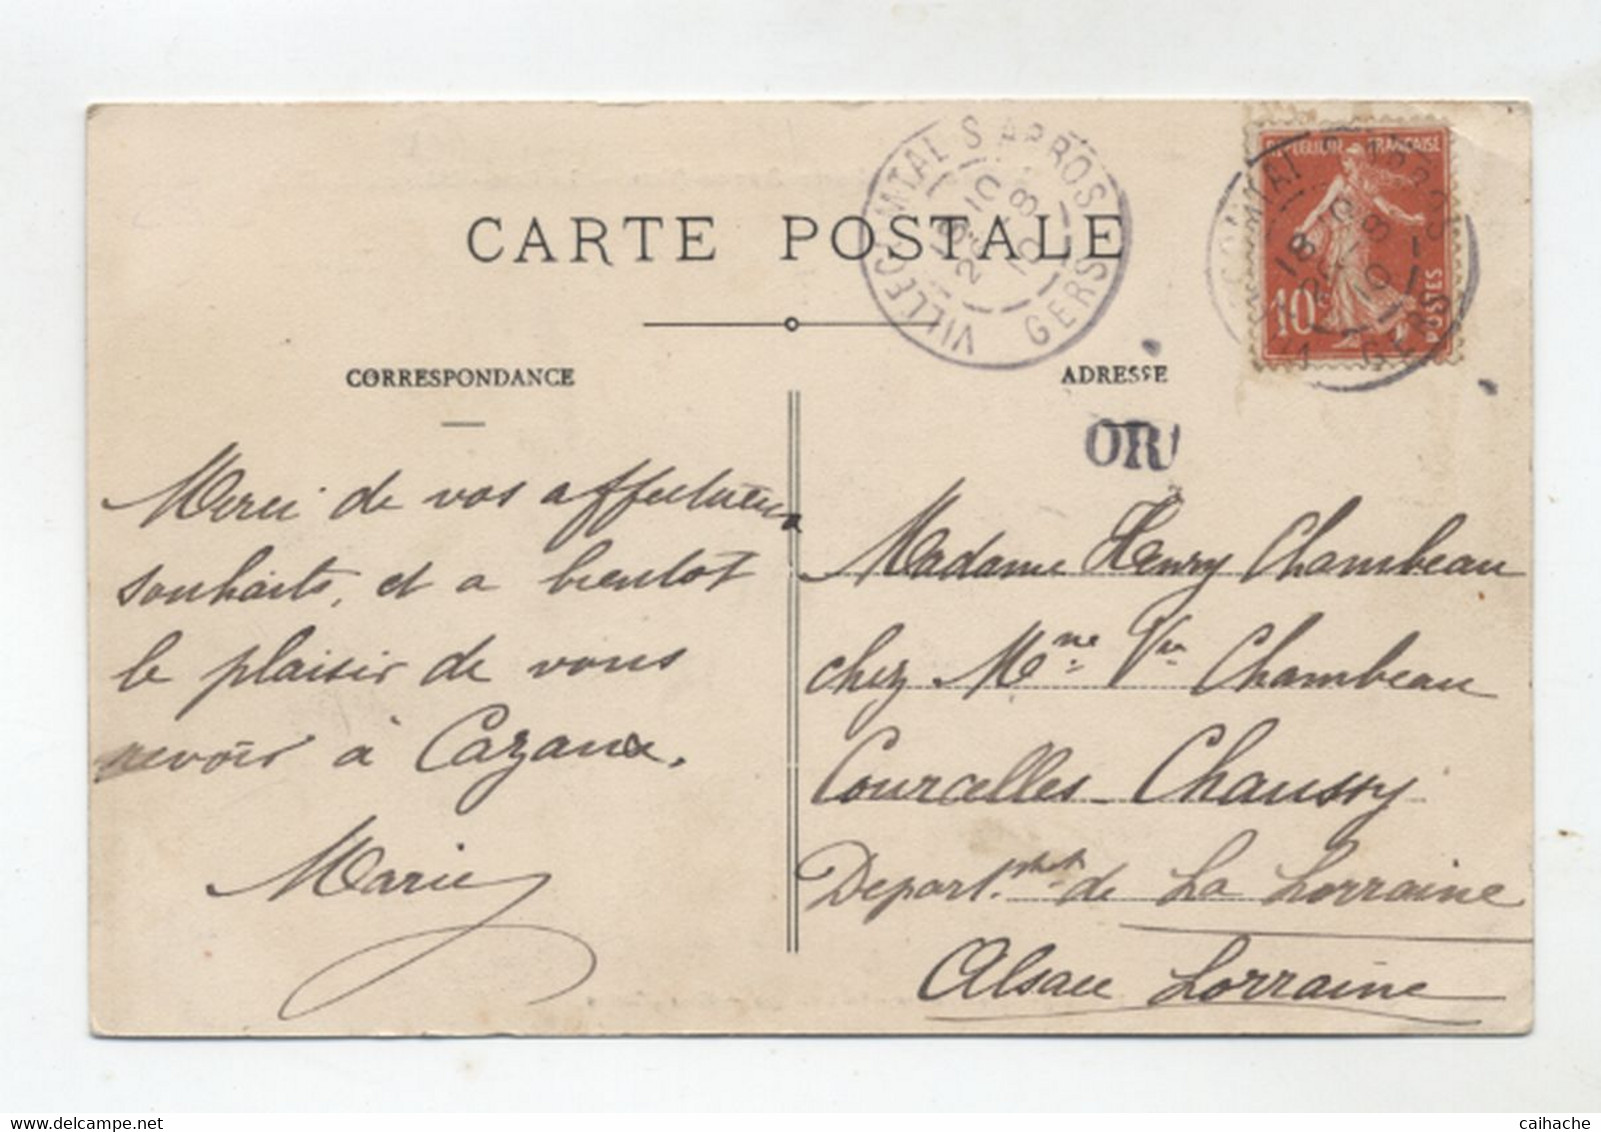 CARTE POSTALE
VILLECOMTAL S ARROS
18 10
25 8
10
GERS
REPUBLIQUE FRANÇAISE
10
POSTES
GERS
CORRESPONDANCE
ADRESSE
OR
Merci de vos affectueux
souhaits, et a bientot
le plaisir de vous
revoir à Cazaux.
Marie
Madame Henry Chambeau
chez Mme Vve Chambeau
Courcelles Chaussy
Depart. de La Lorraine
Alsace Lorraine
www.delcampe.net
caihache